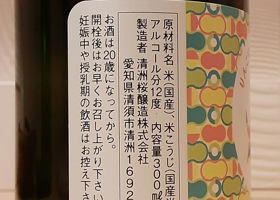 原材料名 米(国産)、米こうじ(国産米
アルコール分12度・内容量300㎖
製造者 清洲桜醸造株式会社
愛知県清須市清洲1692
お酒は20歳になってから。
開栓後はお早くお召し上がり下さい
妊娠中や授乳期の飲酒はお控え下さ